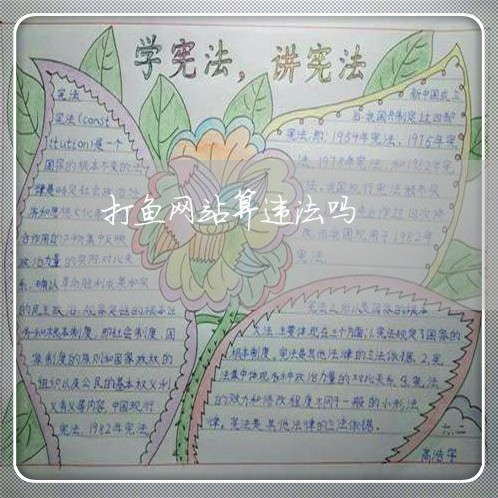 学宪法，讲宪法
宪法
宪法(const
itution)是一个
国家的根本
打鱼网站算违法吗
新中国成立
后，我国共制定过四部
宪法，即：1954年宪法、1975年宪
法、1978年宪法和1982年宪
法。我国现行宪法
宪法。
治力量的实际对比关
系，确认革命胜利成果和
的民主政
和根本制度，即社会制度、国
家制度的原则和国家政权的
组织以及公民的基本权义利
义务等内容。中国现行
宪法，1982年宪法
大法，主要体现在三个方面：1.宪法规定了国家的
根本制度，宪法是其他法律的立法依据。2.宪
法集中体现各种政治力量的对比关系。3.宪法
的效力和修改程度不同于一般的
律，宪法是其他法律的立法依据。
六.二
高浩宇